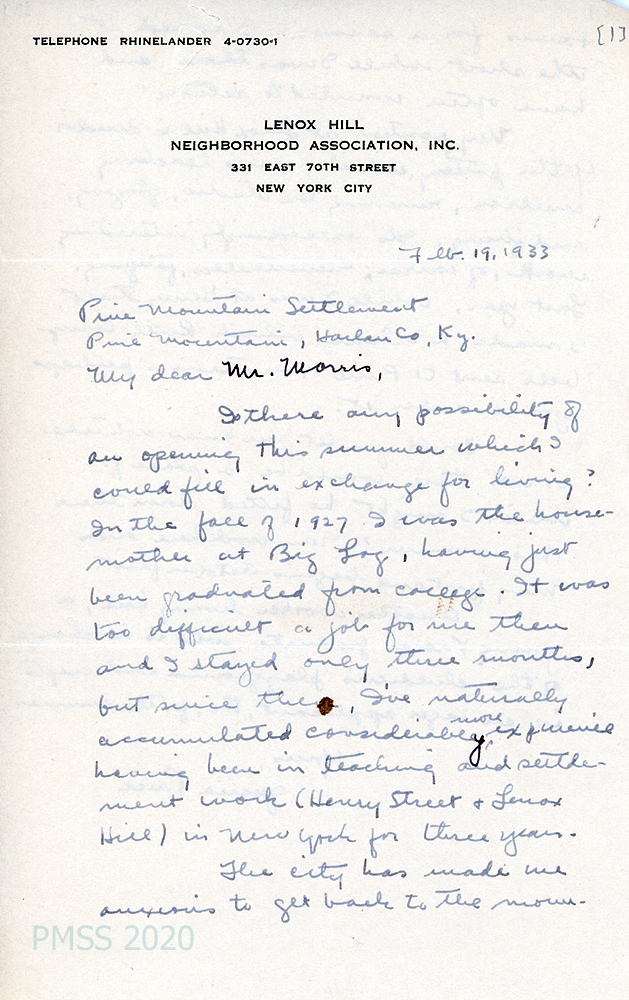 [1]
TELEPHONE RHINELANDER 4-0730-1
LENOX HILL
NEIGHBORHOOD ASSOCIATION, INC.
331 EAST 70TH STREET
NEW YORK CITY
Feb. 19, 1933
Pine Mountain Settlement
Pine Mountain, Harlan Co, Ky.
My dear Mr. Morris,
Is there any possibility of
an opening this summer which I
could fill in exchange for living?
In the fall of 1927 I was the house-
mother at Big Log, having just
been graduated from college. It was
too difficult a job for me then
and I stayed only three months,
but since then, I've naturally
more
accumulated considerabley experience
having been in teaching and settle-
ment work (Henry Street & Lenox
Hill) in New York for three years.
The city has made me
anxious to get back to the moun-
PMSS 2020